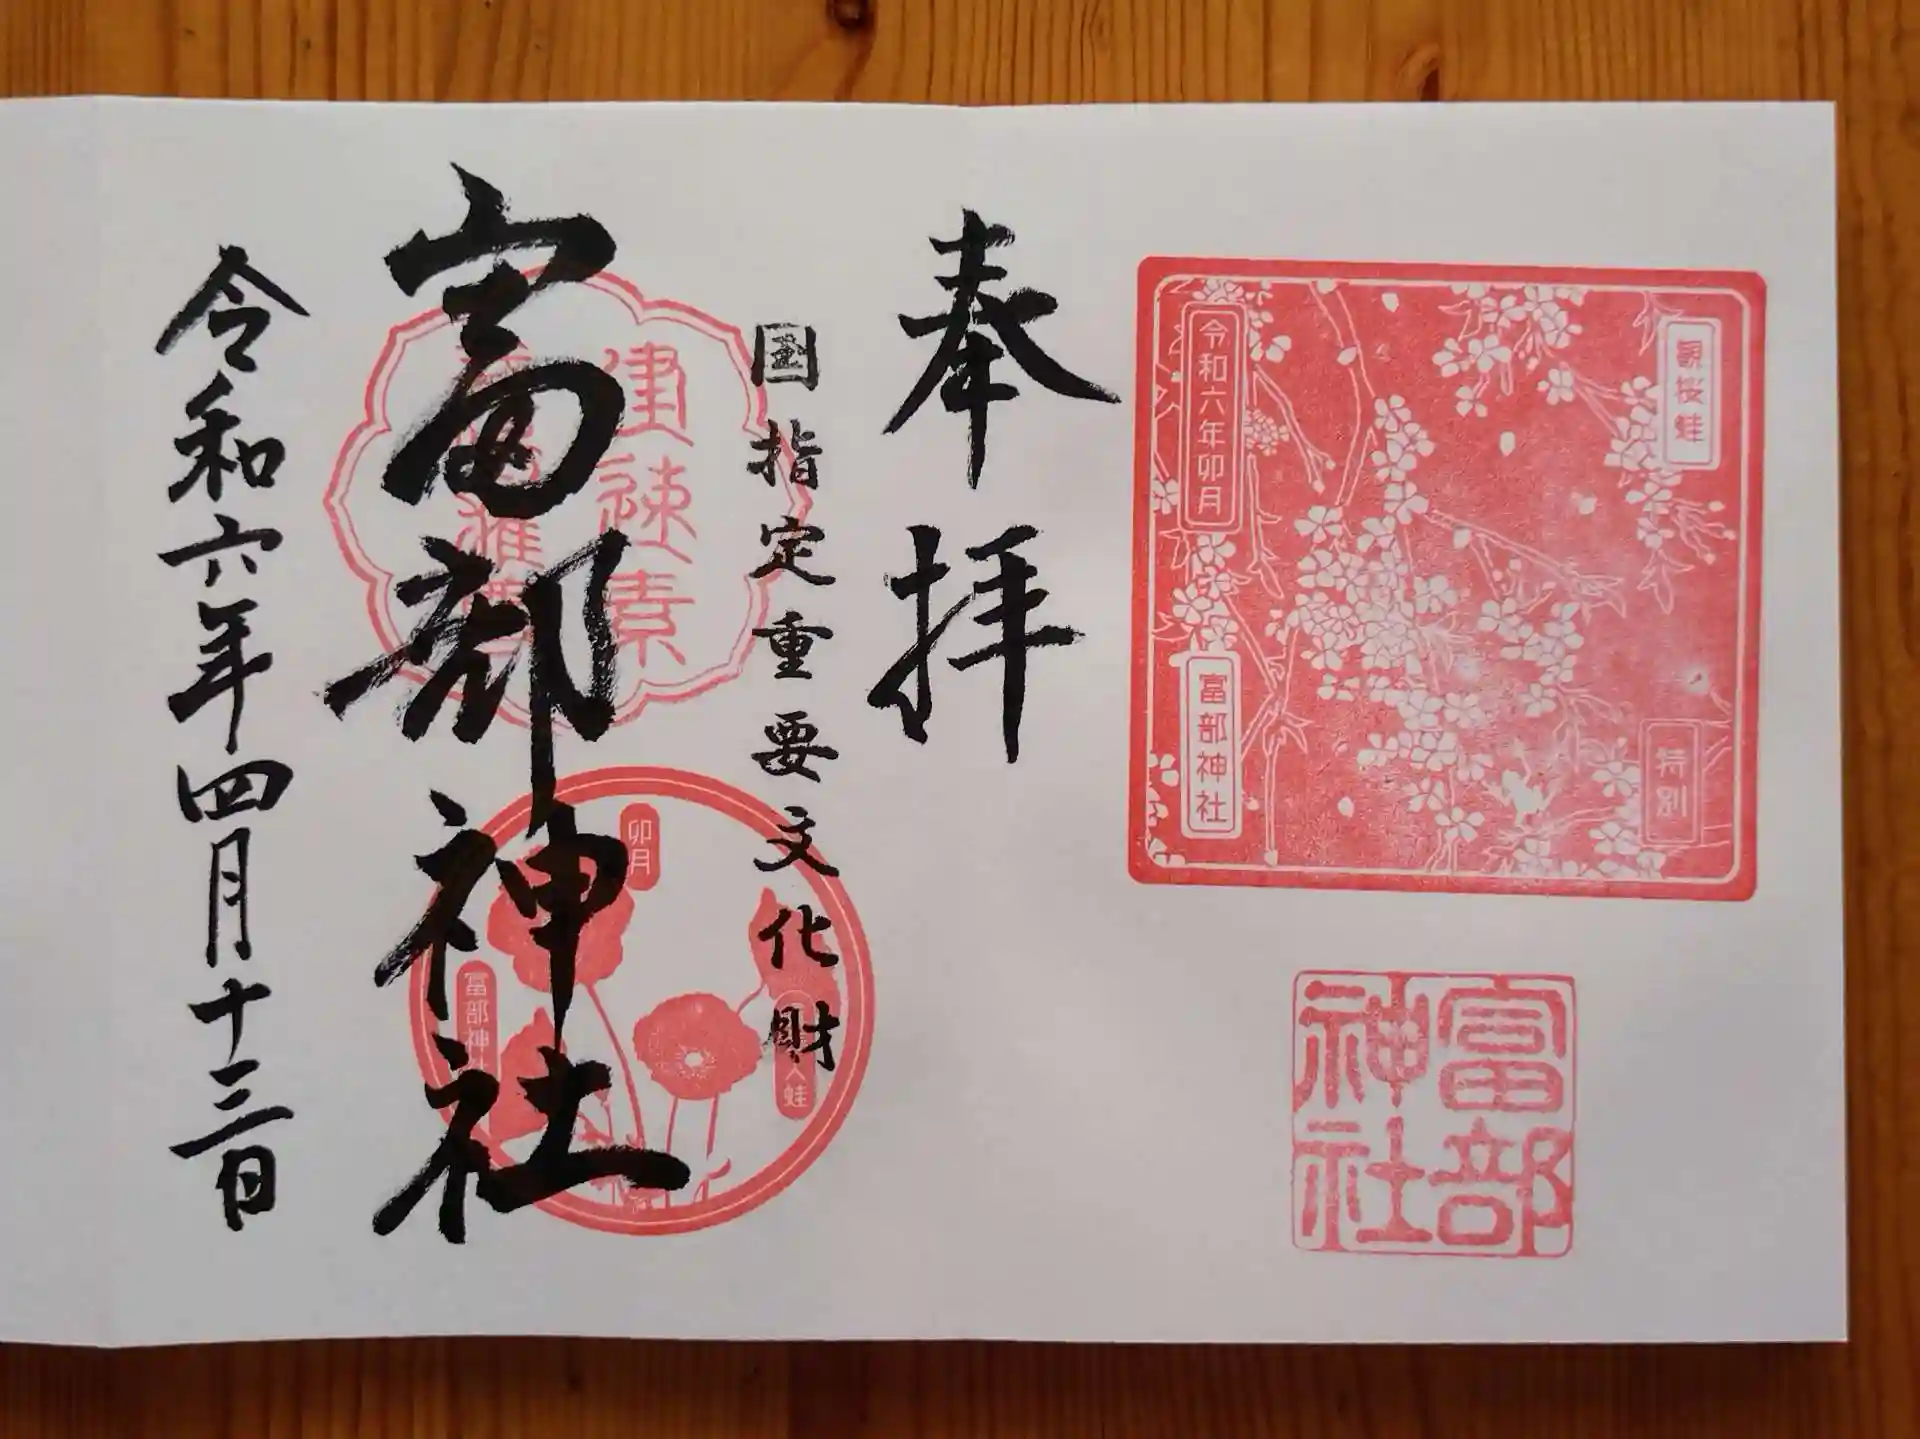 観桜蛙
特別
令和六年卯月
富部神社
富部
神社
奉拝
国指定重要文化財
建速素
富部神社
卯月
蛙
富部神社
令和六年四月十三日